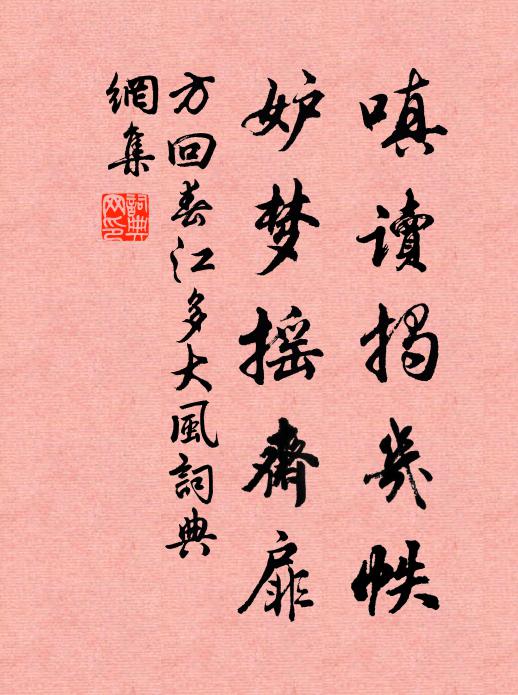 嗔讀揭几帙
妒梦摇齋扉
方回春江多大風詞典
網集
詞典網印